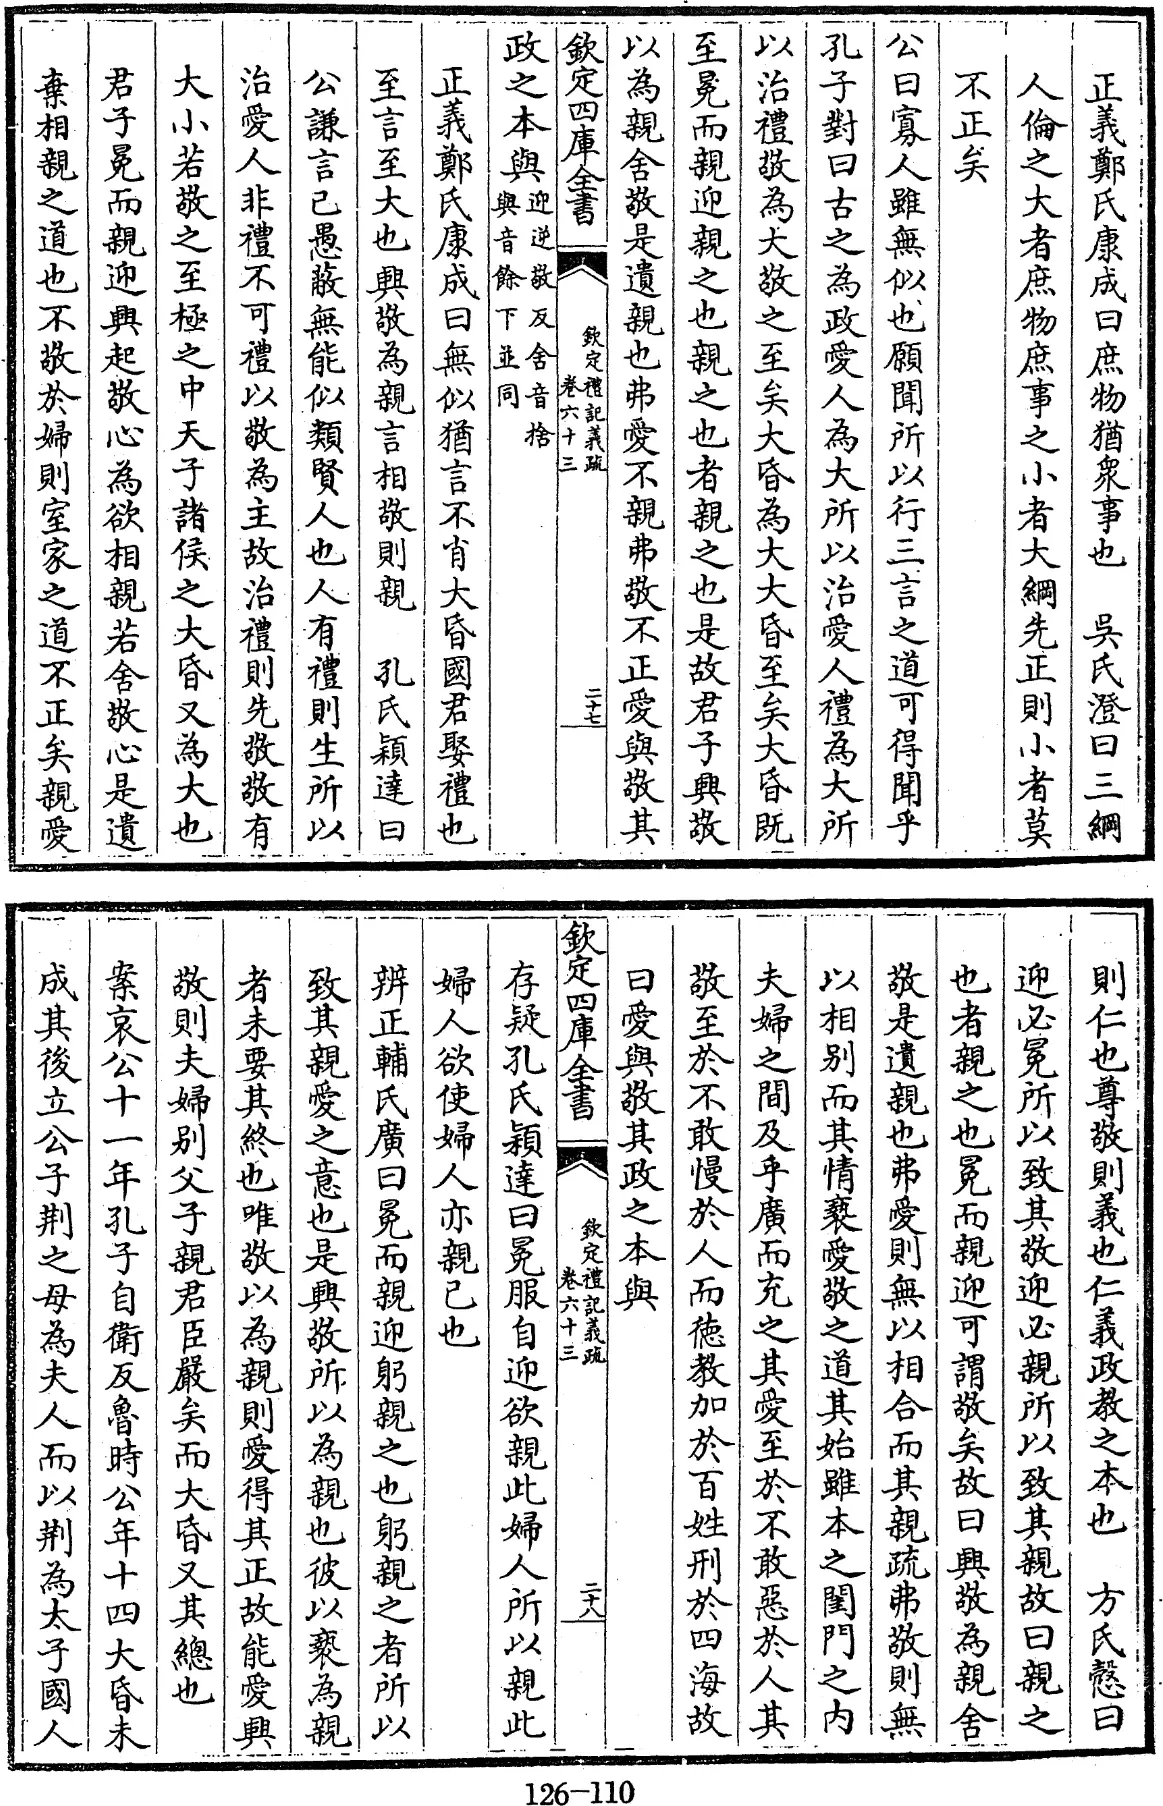 正義鄭氏康成曰庶物猶衆事也　吳氏澄曰三綱
人倫之大者庶物庶事之小者大綱先正則小者莫
不正矣
公曰寡人雖無似也願聞所以行三言之道可得聞乎
孔子對曰古之為政愛人為大所以治愛人禮為大所
以治禮敬為大敬之至矣大昏為大大昏至矣大昏既
至冕而親迎親之也親之也者親之也是故君子興敬
以為親舍敬是遺親也弗愛不親弗敬不正愛與敬其
欽定四庫全書
欽定禮記義疏
卷六十三
二十七
政之本與迎逆敬反舍音捨
與音餘下並同
正義鄭氏康成曰無似猶言不肖大昏國君娶禮也
至言至大也興敬為親言相敬則親　孔氏穎達曰
公謙言己愚蔽無能似類賢人也人有禮則生所以
治愛人非禮不可禮以敬為主故治禮則先敬敬有
大小若敬之至極之中天子諸侯之大昏又為大也
君子冕而親迎興起敬心為欲相親若舍敬心是遺
棄相親之道也不敬於婦則室家之道不正矣親愛
則仁也尊敬則義也仁義政教之本也　方氏慤曰
迎必冕所以致其敬迎必親所以致其親故曰親之
也者親之也冕而親迎可謂敬矣故曰興敬為親舍
敬是遺親也弗愛則無以相合而其親疏弗敬則無
以相別而其情褻愛敬之道其始雖本之閨門之內
夫婦之間及乎廣而充之其愛至於不敢惡於人其
敬至於不敢慢於人而德教加於百姓刑於四海故
曰愛與敬其政之本與
欽定四庫全書
欽定禮記義疏
卷六十三
二十八
存疑孔氏穎達曰冕服自迎欲親此婦人所以親此
婦人欲使婦人亦親己也
辨正輔氏廣曰冕而親迎躬親之也躬親之者所以
致其親愛之意也是興敬所以為親也彼以褻為親
者未要其終也唯敬以為親則愛得其正故能愛興
敬則夫婦別父子親君臣嚴矣而大昏又其總也
案哀公十一年孔子自衛反魯時公年十四大昏未
成其後立公子荆之母為夫人而以荆為太子國人
126-110